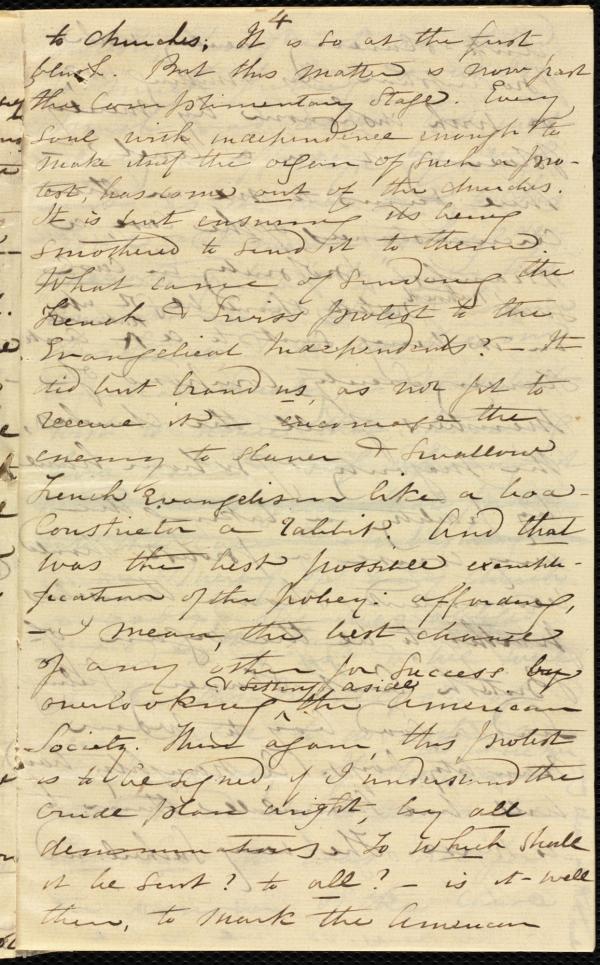 4
to churches; It is so at the first
blush. But this matter is now past
the complimentary stage. Every
soul with independence enough to
make itself the organ of such a pro-
test, has come out of the churches.
It is but ensuring its being
smothered to send it to them.
What came of sending the
French & Swiss protest to the
Evangelical Independents? — It
did but brand us, as not fit to
receive it — encourage the
enemy to slaver & swallow
French Evangelism like a boa-
Constrictor a rabbit. And that
was the best possible exempli-
fication of the policy: affording,
— I mean, the best chance
of any other for success by
overlooking & setting aside the American
Society. Then again, this protest
is to be signed, if I understand the
crude plan aright, by all
denominations. To which shall
it be sent? to all? — is it well
then, to mark the American